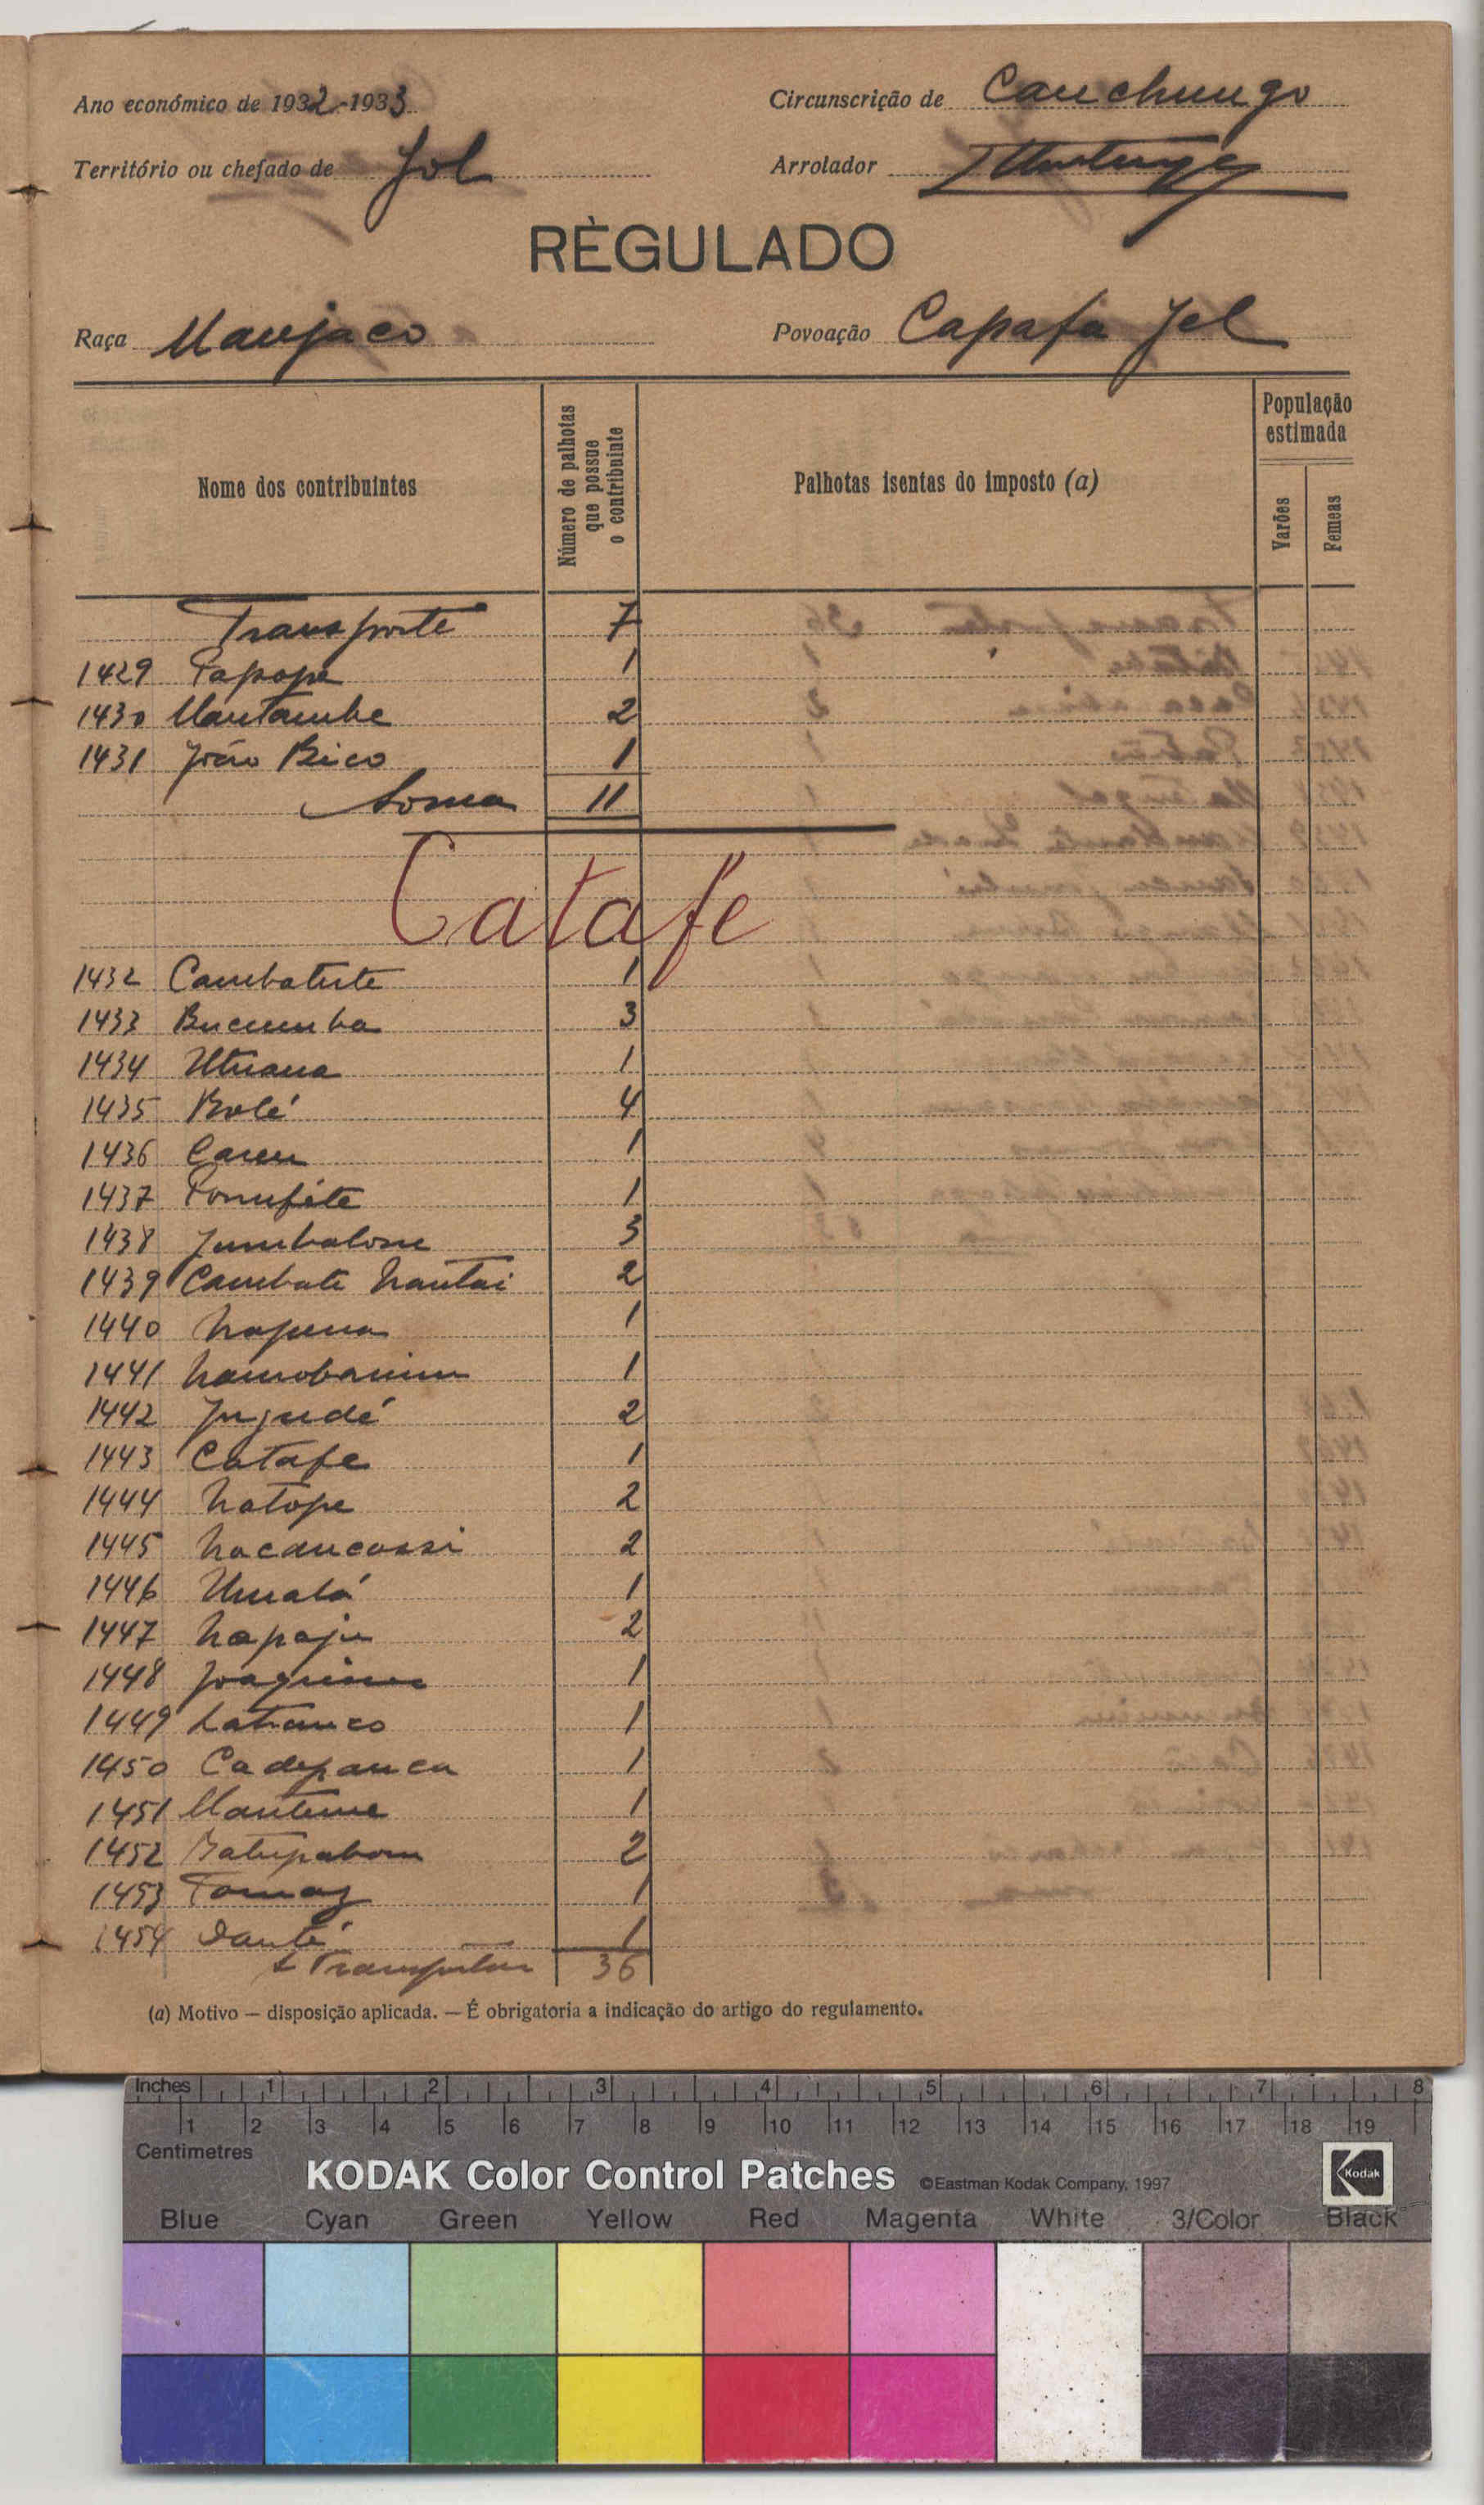 Ano económico de 1932-1933
Circunscrição de Canchungo
Território ou chefado de Jol
Arrolador
RÈGULADO
Raça Manjaco
Povoação Capafa Jol
Nome dos contribuintes
Número de palhotas que possue o contribuinte
Palhotas isentas do imposto (a)
População estimada
Varões
Femeas
Transporte 7
1429 Papope 1
1430 Mantambe 2
1431 João Bico 1
Soma 11
Catafe
1432 Cambatute 1
1433 Bucumba 3
1434 Utuana 1
1435 Bolé 4
1436 Caren 1
1437 1
1438 Jumbalom 3
1439 Cambate Nantai 2
1440 Napena 1
1441 1
1442 Jugudé 2
1443 Catafe 1
1444 Natope 2
1445 Nacancassi 2
1446 Umalá 1
1447 Napaju 2
1448 Joaquim 1
1449 1
1450 Cadepanca 1
1451 Manteme 1
1452 Batupabom 2
1453 Tomaz 1
1454 Dambé 1
A Transportar 36
(a) Motivo — disposição aplicada. — É obrigatoria a indicação do artigo do regulamento.
Inches 1 2 3 4 5 6 7 8
1 2 3 4 5 6 7 8 9 10 11 12 13 14 15 16 17 18 19
Centimetres
KODAK Color Control Patches ©Eastman Kodak Company, 1997 Kodak
Blue Cyan Green Yellow Red Magenta White 3/Color Black